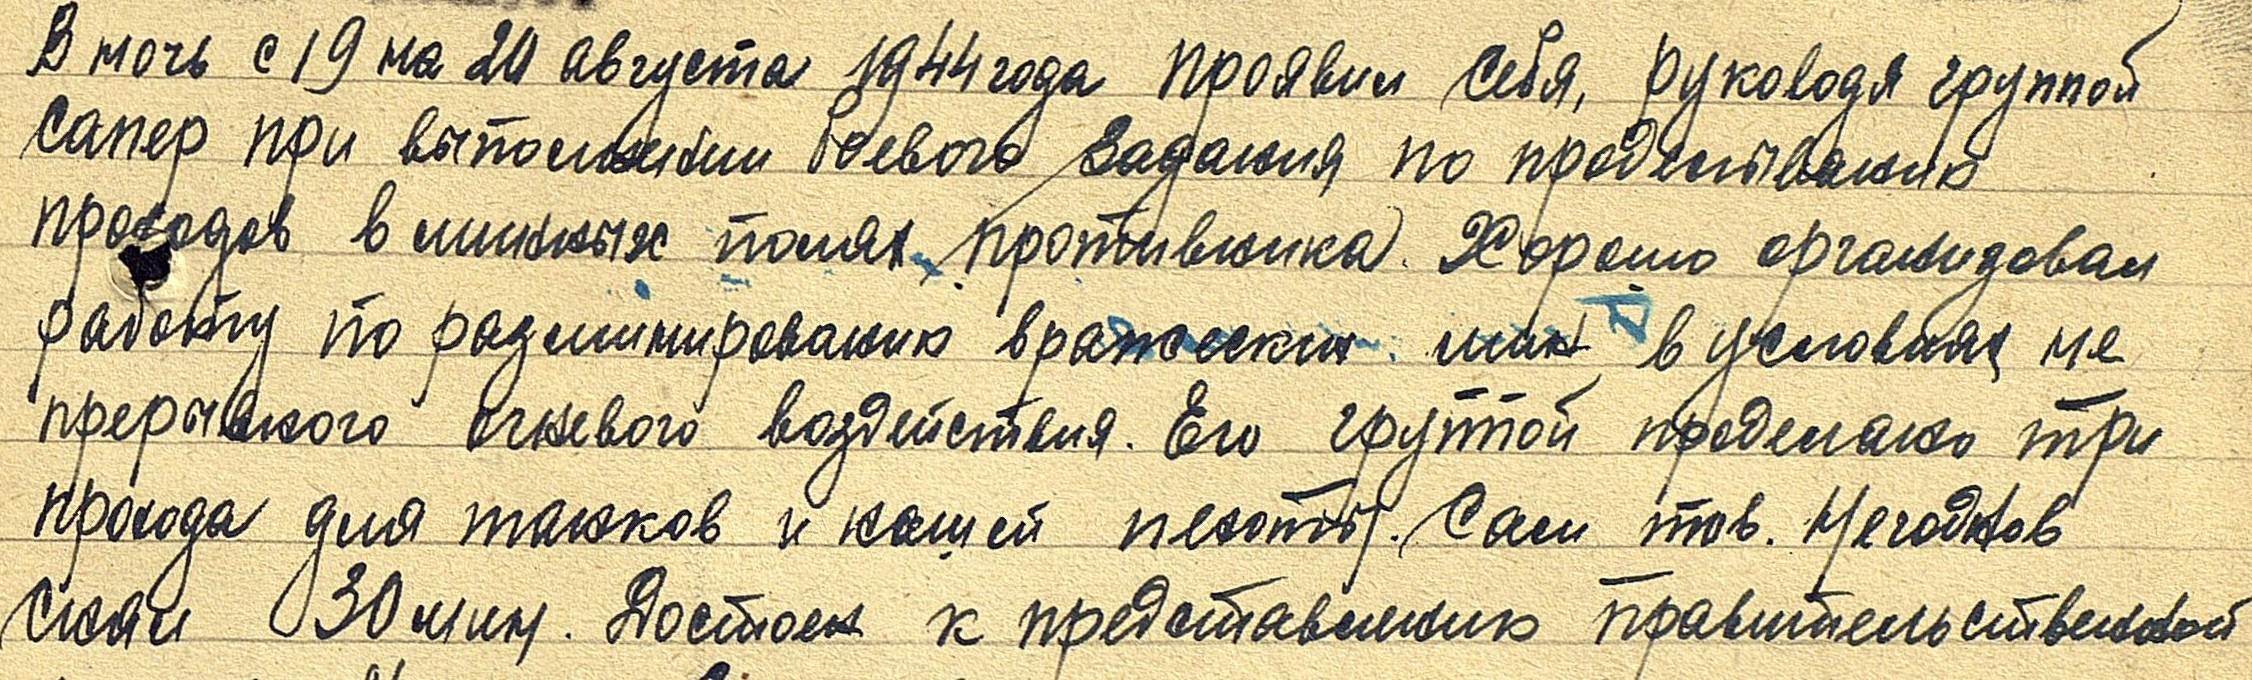 В ночь с 19 на 20 августа 1944 года проявил себя, руководя группой
сапер при выполнении боевого задания по проделыванию
проходов в минных полях противника. Хорошо организовал
работу по разминированию вражеских мин в условиях не
прерывного огневого воздействия. Его группой проделано три
прохода для танков и нашей пехоты. Сам тов.
снял 30 мин. Достоен к представлению правительственной